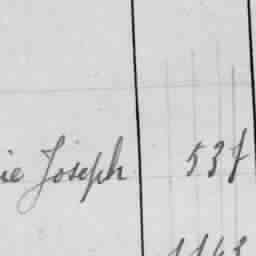 ie Joseph 537
1163